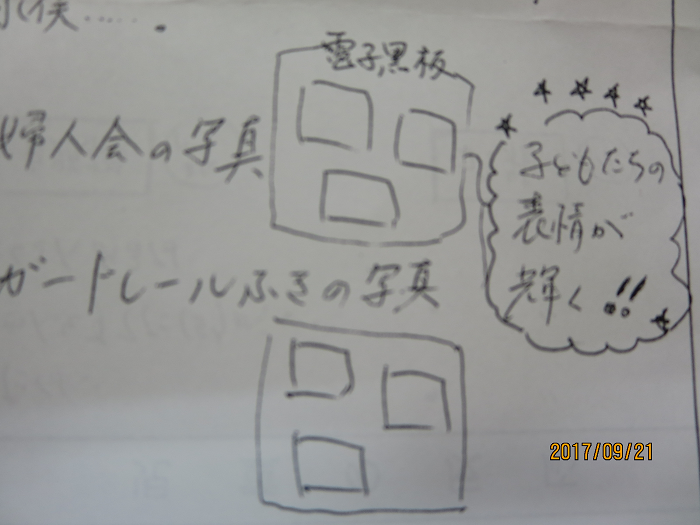 電子黒板
婦人会の写真
子どもたちの
表情が
輝く!!
ガードレールふきの写真
2017/09/21